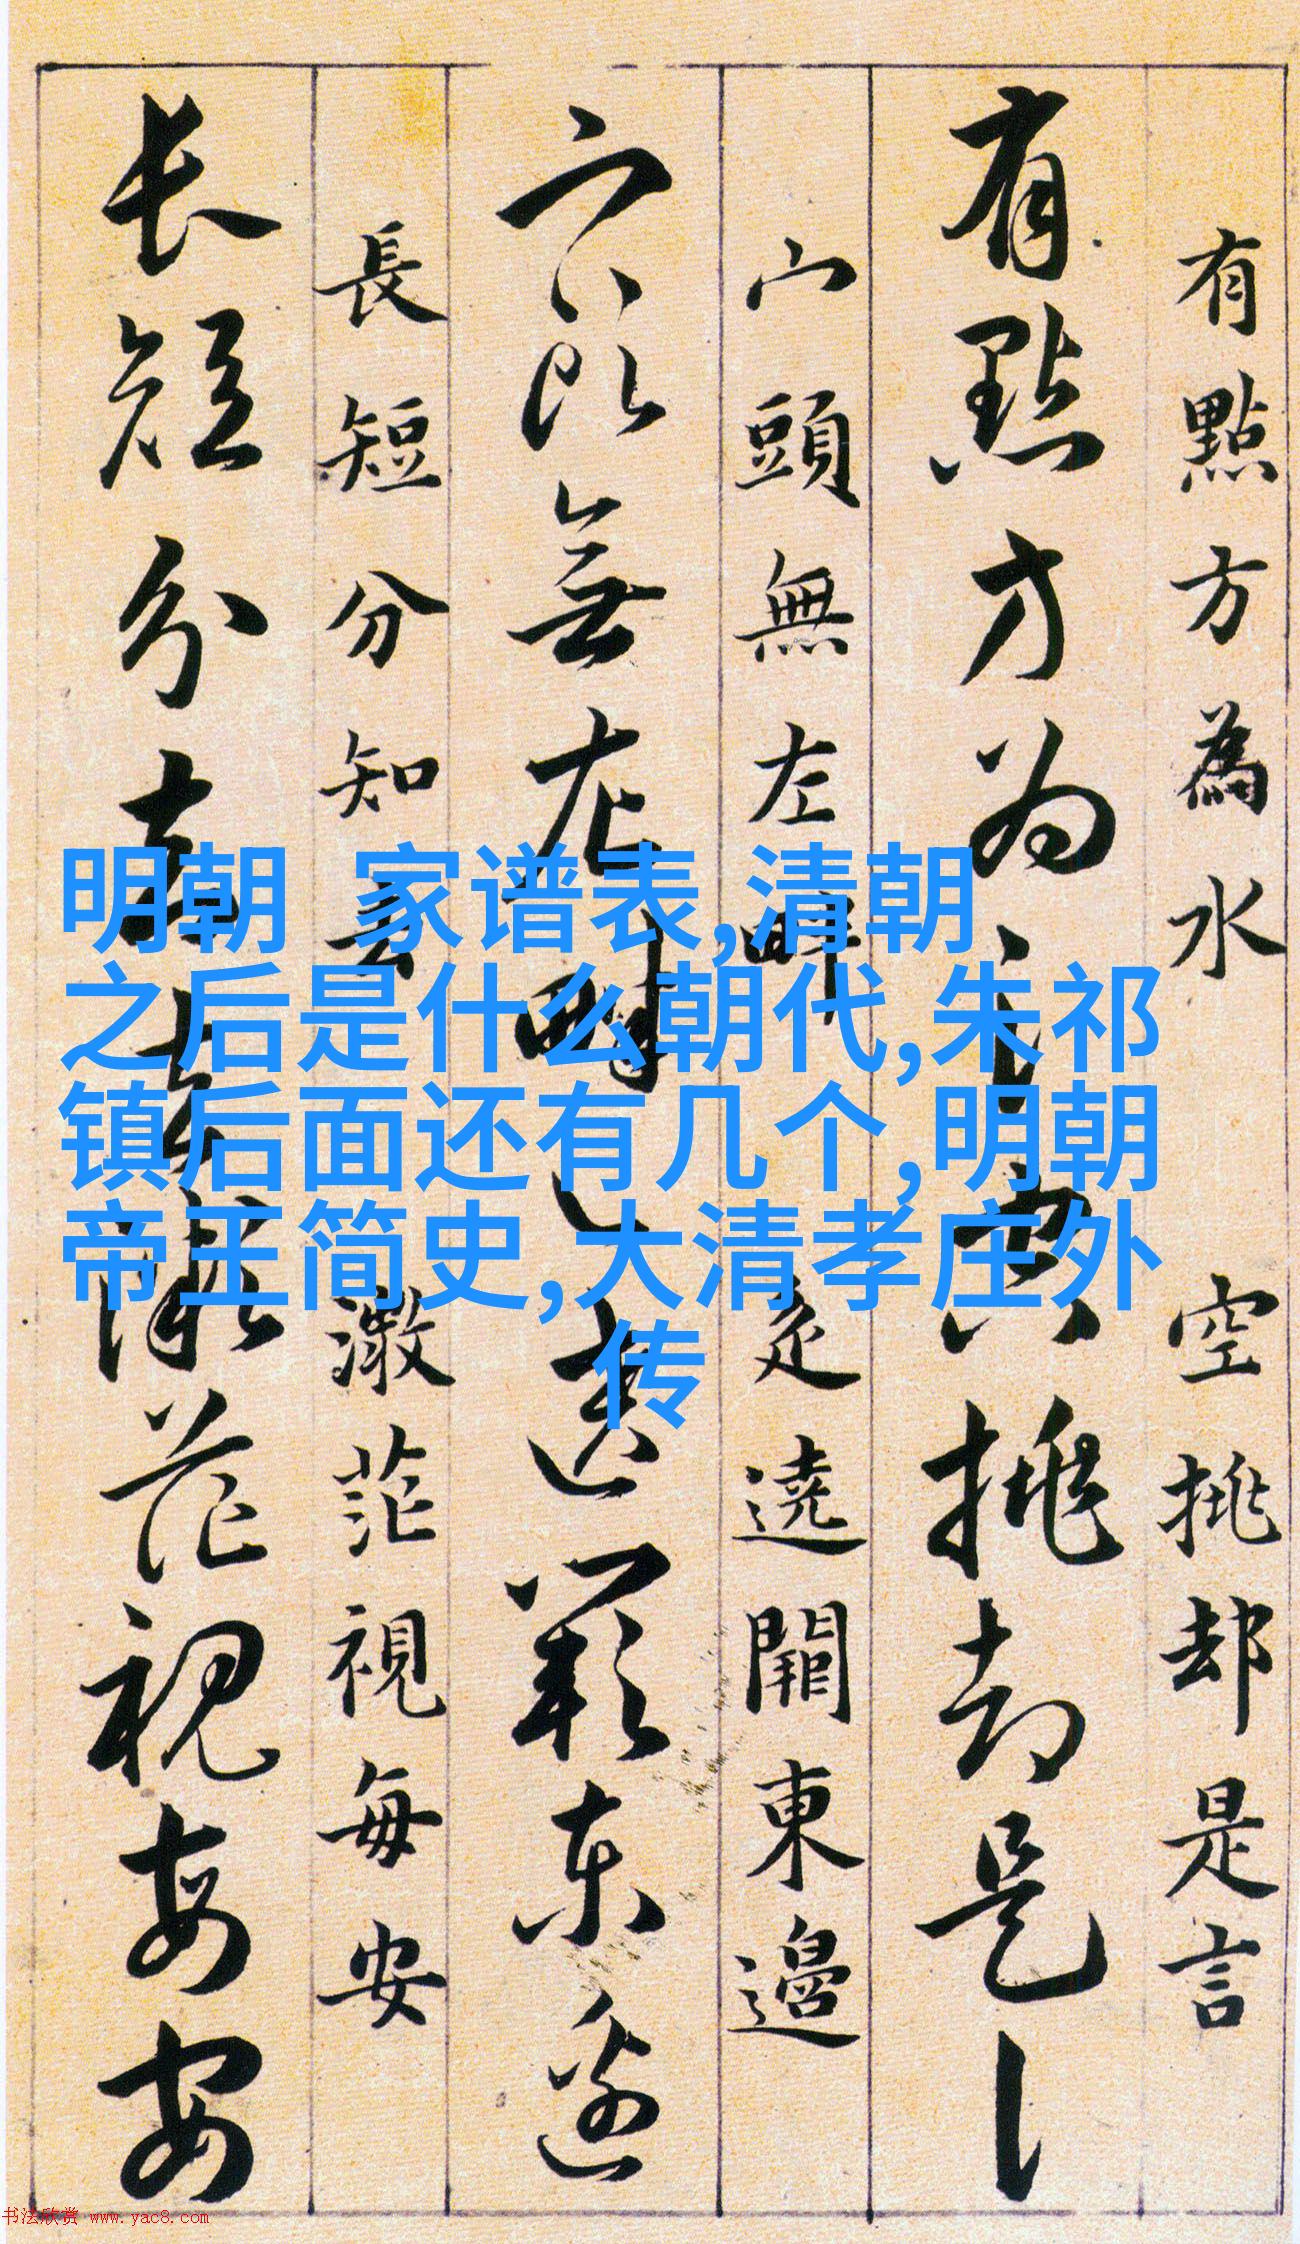 有點方為水 空挑却是言
有點方为氵空挑却是讠
宀頭無左畔 辵遶闕東邊
宀頭無左畔辶遶闕东邊
長短分知去 微茫視每安
长短分知去微茫視每安
明朝 家谱表,清朝
之后是什么朝代,朱祁
镇后面还有几个,明朝
帝王简史,大清孝庄外
传
书法欣赏 www.yac8.com